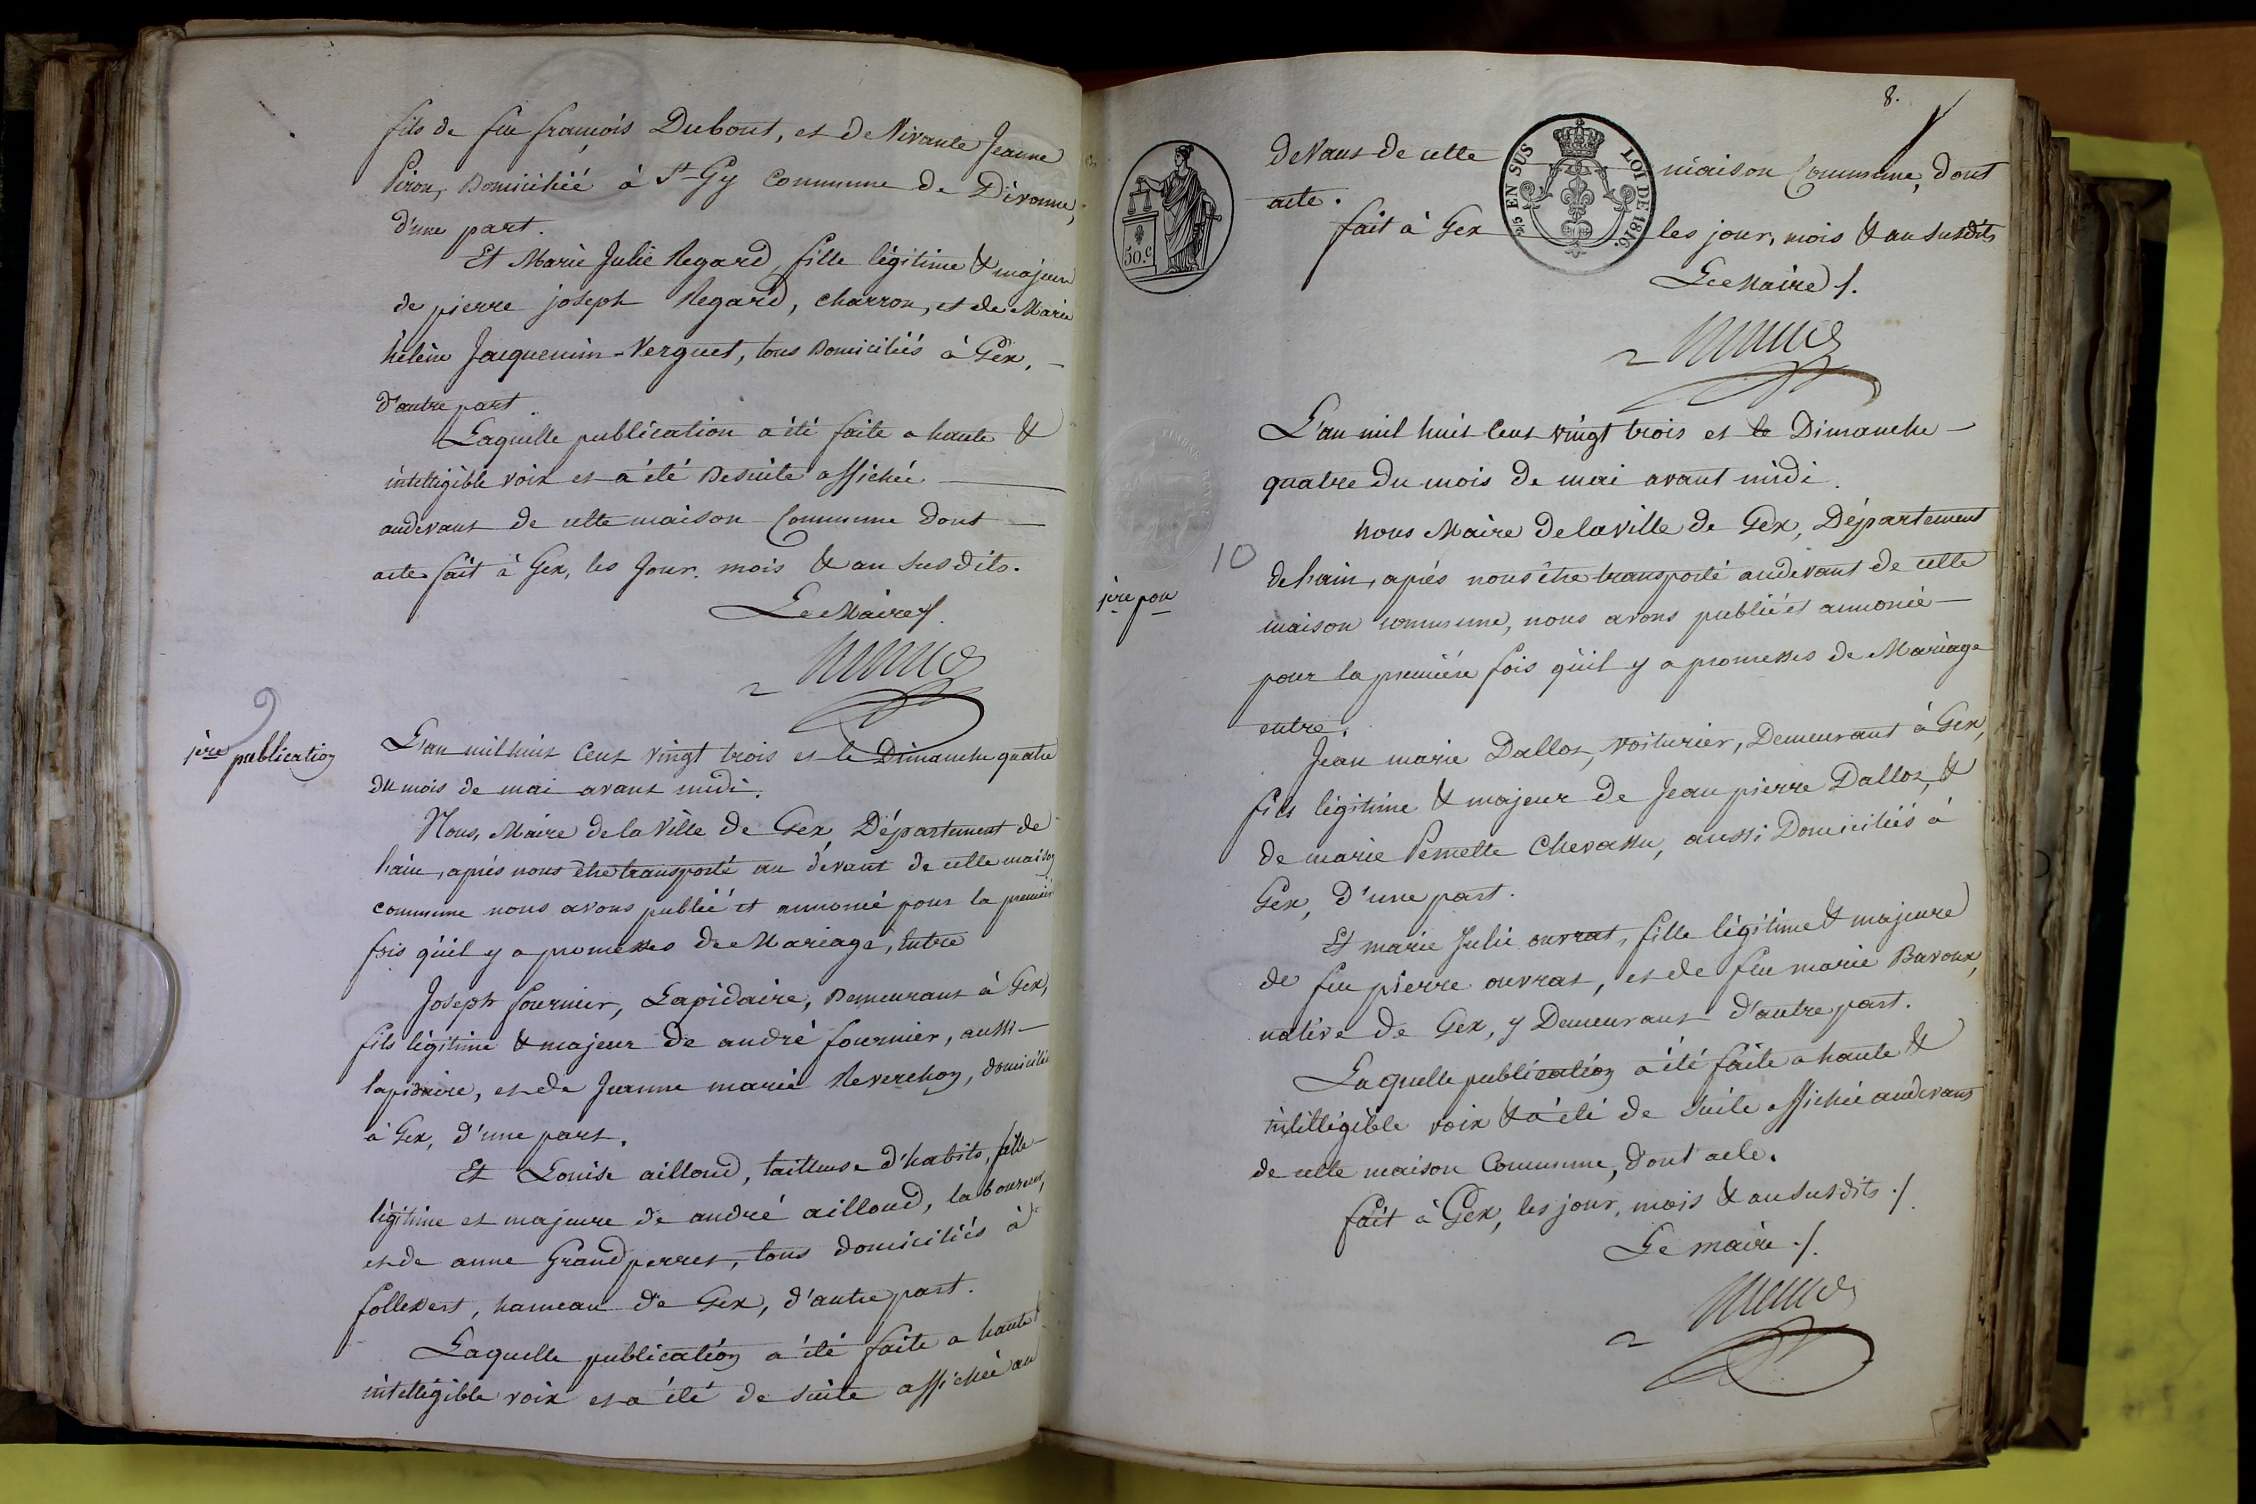 fils de feu françois Dubout, et de Vivante Jeanne
Piron, Domicilié à St Gy commune de Divonne,
d'une part.
Et Marie Julie Regard, fille légitime & majeure
de pierre joseph Regard, charron, et de Marie
hélène Jacquemin-Verguet, tous Domiciliés à Gex,
d'autre part.
Laquelle publication a été faite a haute &
intelligible voix et a été Desuite affichée
audevant de cette maison Commune dont
acte fait à Gex, les Jour, mois & an susdits.
Le Maire /.
9
1ère publication
L'an mil huit Cent vingt trois et le Dimanche quatre
du mois de mai avant midi.
Nous, Maire de la Ville de Gex, Département de
l'ain, après nous être transporté au devant de cette maison
commune nous avons publié et annoncé pour la première
fois qu'il y a promesses de Mariage, entre
Joseph fournier, Lapidaire, Demeurant à Gex,
fils légitime & majeur de andré fournier, aussi
lapidaire, et de Jeanne marie Reverchon, domiciliés
à Gex, d'une part.
Et Louise ailloud, tailleuse d'habits, fille
légitime et majeure de andré ailloud, laboureur,
et de anne Grandperret, tous domiciliés à
follexert, hameau de Gex, d'autre part.
Laquelle publication a été faite a haute
intelligible voix et a été de suite affichée au
8.
50 c.
5/5 EN SUS
LOI DE 1816.
devant de cette maison Commune, dont
acte.
fait à Gex les jour, mois & an susdits
Le Maire /.
10
1ère pon
L'an mil huit Cent vingt trois et le Dimanche
quatre Du mois de mai avant midi.
nous Maire de la ville de Gex, Département
de l'ain, après nous être transporté audevant de cette
maison commune, nous avons publié et annoncé
pour la première fois qu'il y a promesses de Mariage
entre.
Jean marie Dalloz, voiturier, Demeurant à Gex,
fils légitime & majeur de Jean pierre Dalloz, &
de marie Pernette Chevassu, aussi Domiciliés à
Gex, d'une part.
Et marie Julie ouvrat, fille légitime & majeure
de feu pierre ouvrat, et de feu marie Baroux,
native de Gex, y Demeurant d'autre part.
Laquelle publication a été faite a haute &
intelligible voix & a été de suite affichée audevant
de cette maison Commune, dont acte.
fait à Gex, les jour, mois & an susdits ./.
Le maire ./.